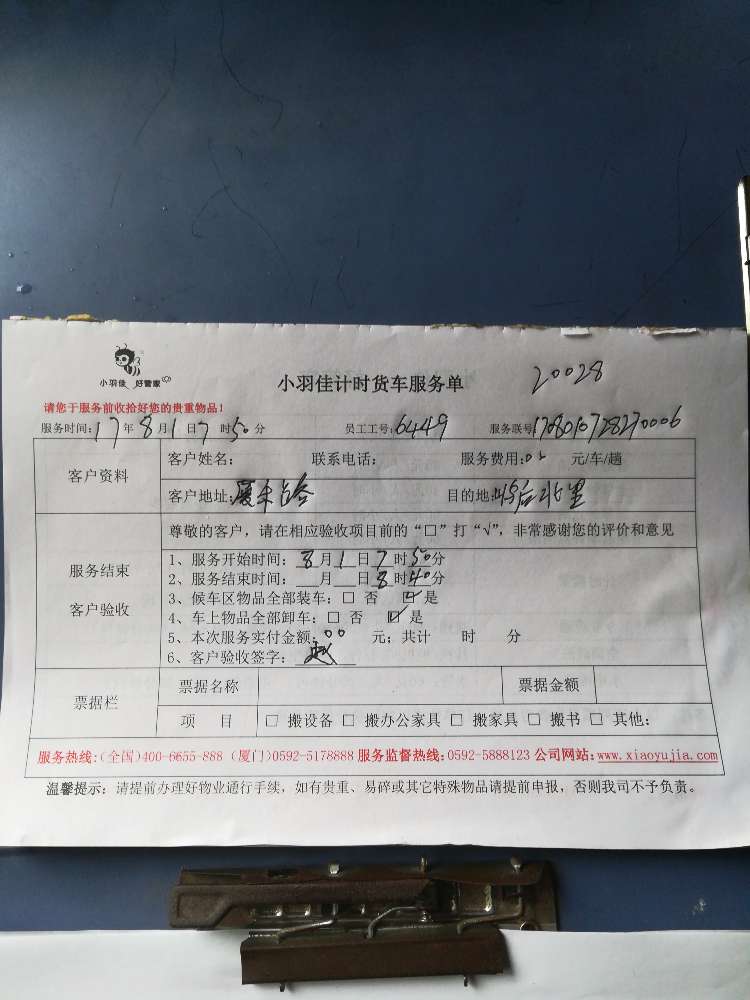 小羽佳 好管家
小羽佳计时货车服务单
20028
请您于服务前收拾好您的贵重物品!
服务时间:17年8月1日7时50分 员工工号:6449 服务联号
客户资料
客户姓名: 联系电话: 服务费用: 元/车/趟
客户地址:厦禾路 目的地: 后北里
服务结束
客户验收
尊敬的客户,请在相应验收项目前的“□”打“√”,非常感谢您的评价和意见
1、服务开始时间:8月1日7时50分
2、服务结束时间: 月 日8时40分
3、候车区物品全部装车:□ 否 ☑ 是
4、车上物品全部卸车:□ 否 ☑ 是
5、本次服务实付金额:00 元;共计 时 分
6、客户验收签字:赵
票据栏
票据名称 票据金额
项 目 □ 搬设备 □ 搬办公家具 □ 搬家具 □ 搬书 □ 其他:
服务热线:(全国)400-6655-888 (厦门)0592-5178888 服务监督热线:0592-5888123 公司网站:www.xiaoyujia.com
温馨提示:请提前办理好物业通行手续,如有贵重、易碎或其它特殊物品请提前申报,否则我司不予负责。